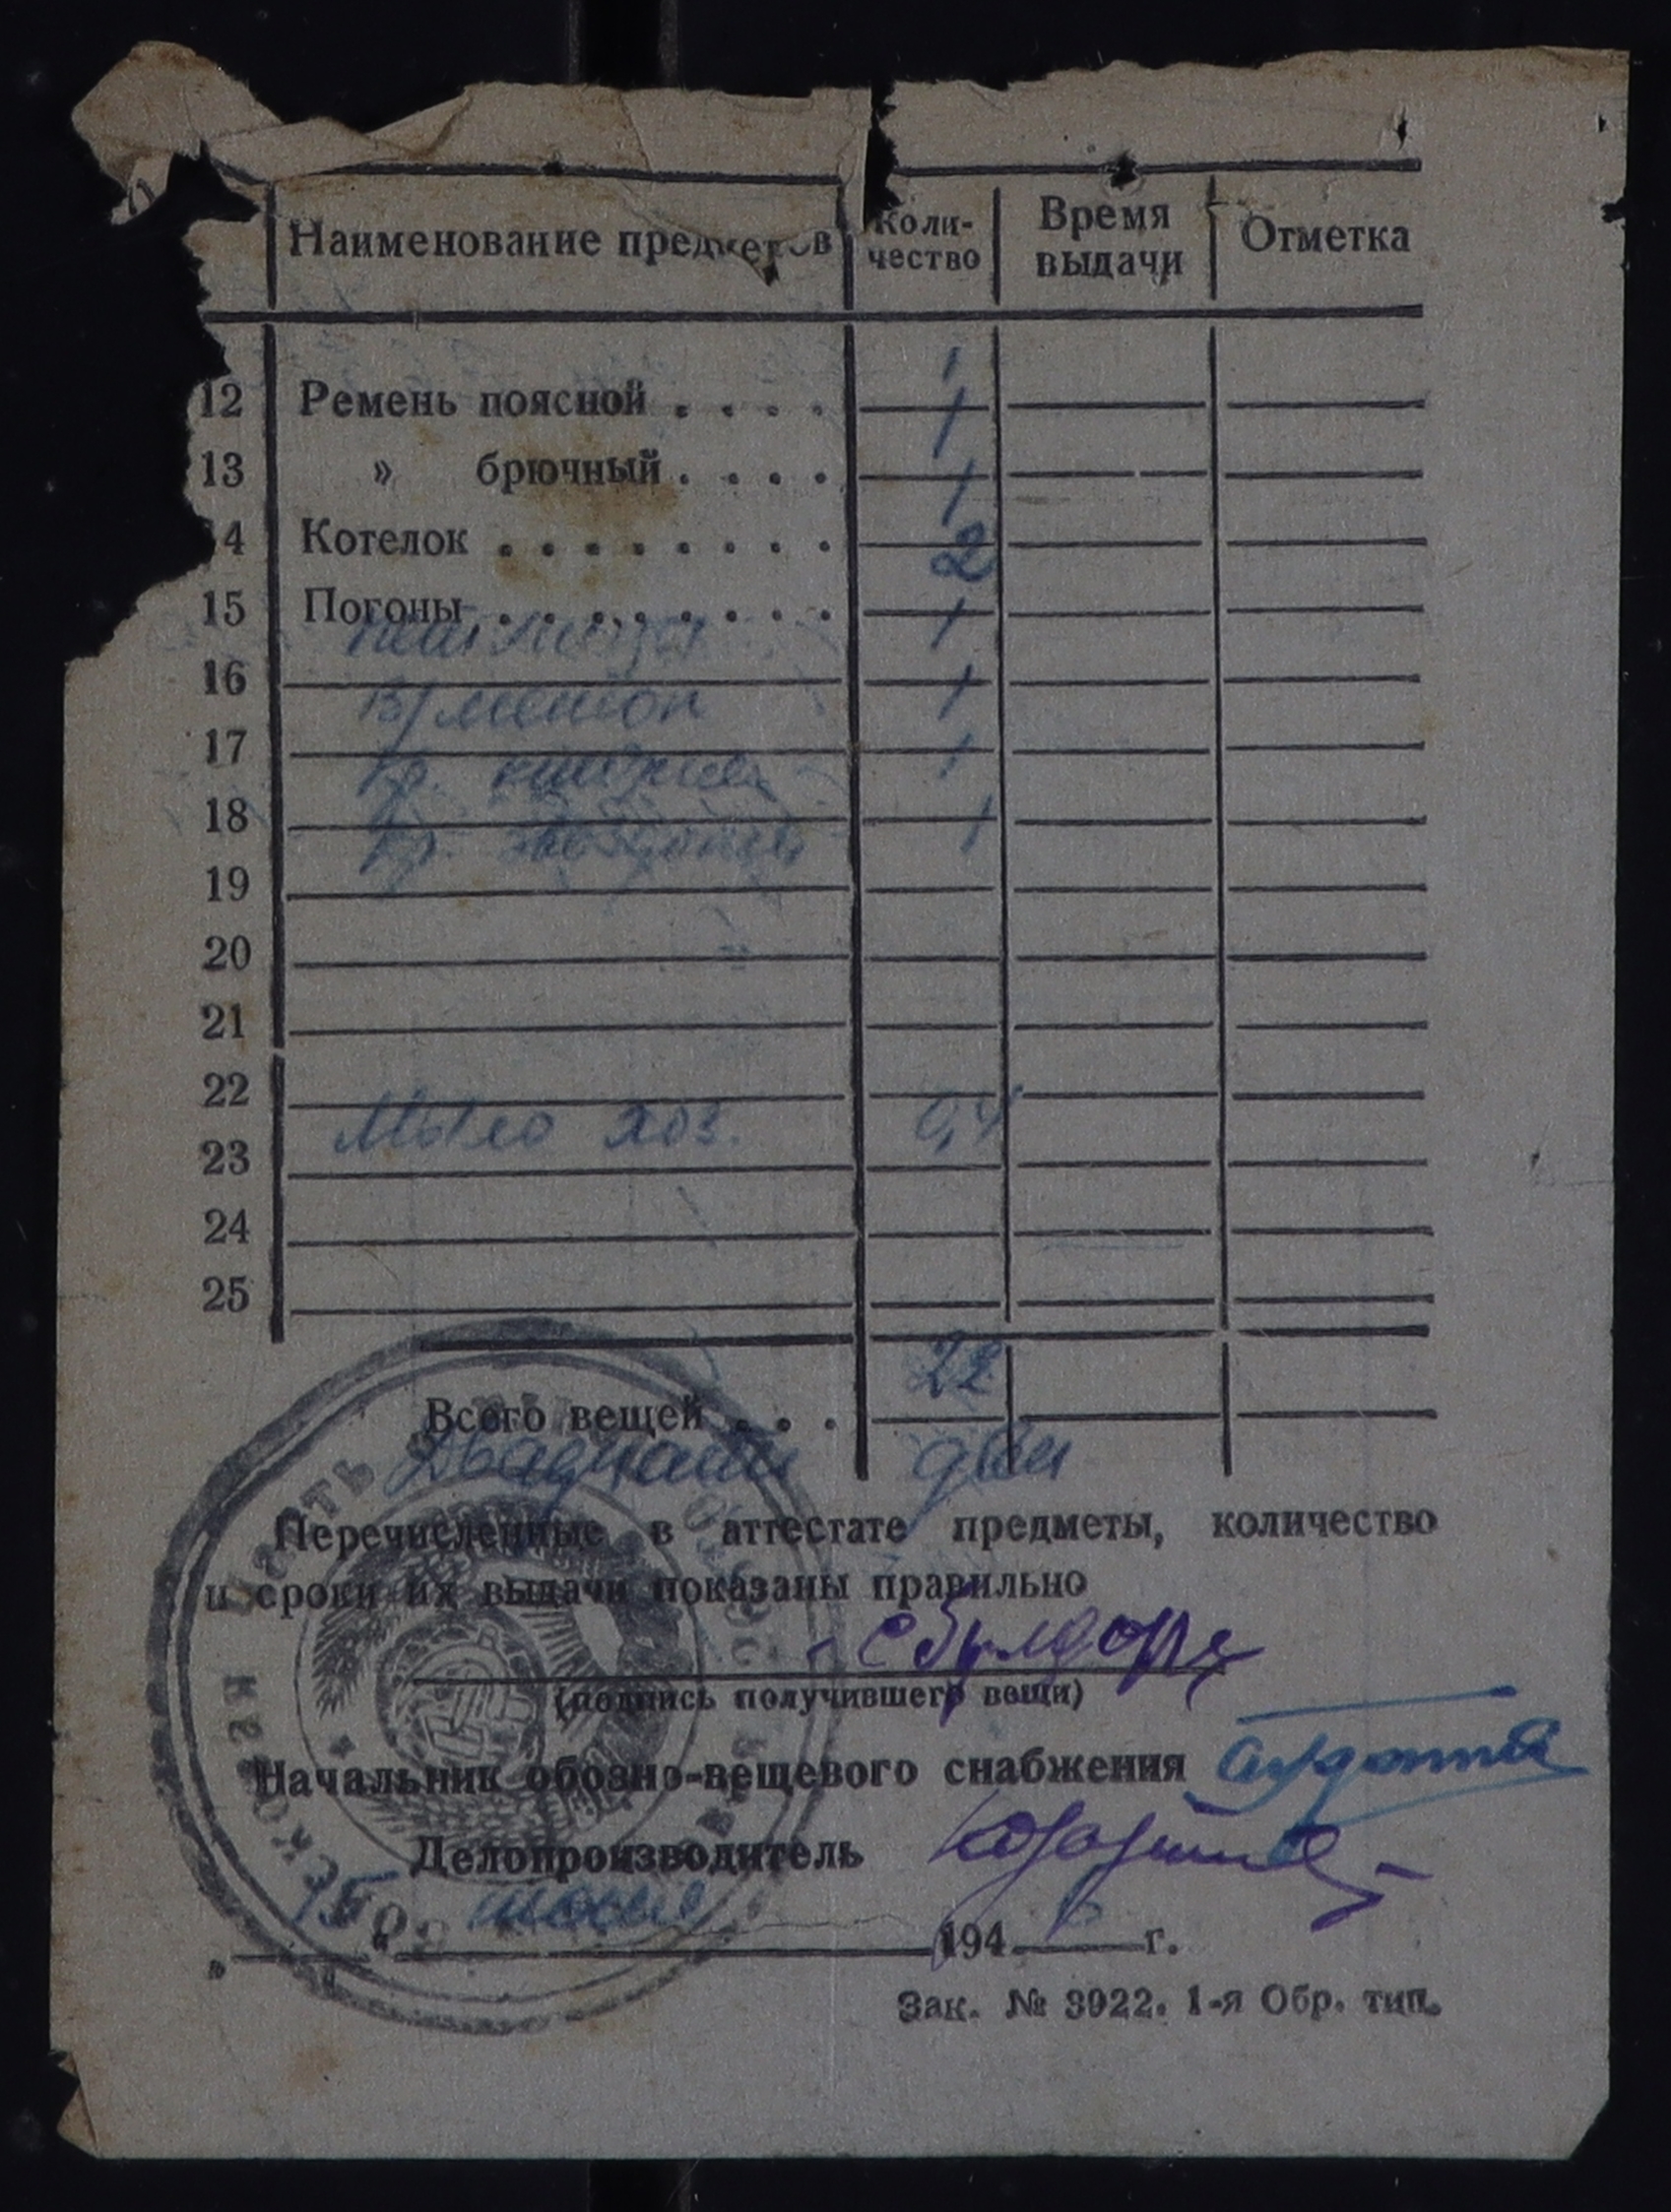 Наименование предметов Количество Время выдачи Отметка
1
12 Ремень поясной . . . . 1
13 » брючный . . . . 1
14 Котелок . . . . . . . . 2
15 Погоны . . . . . . . . 1
16 1
В/мешок
17 1
Кр.
18 1
Кр.
19
20
21
22
Мыло хоз. 0,4
23
24
25
22
Всего вещей . . .
Двадцать два
Перечисленные в аттестате предметы, количество
и сроки их выдачи показаны правильно
(подпись получившего вещи)
Начальник обозно-вещевого снабжения
Делопроизводитель
15 июня 6
„ “ 194 г.
Зак. № 3922. 1-я Обр. тип.